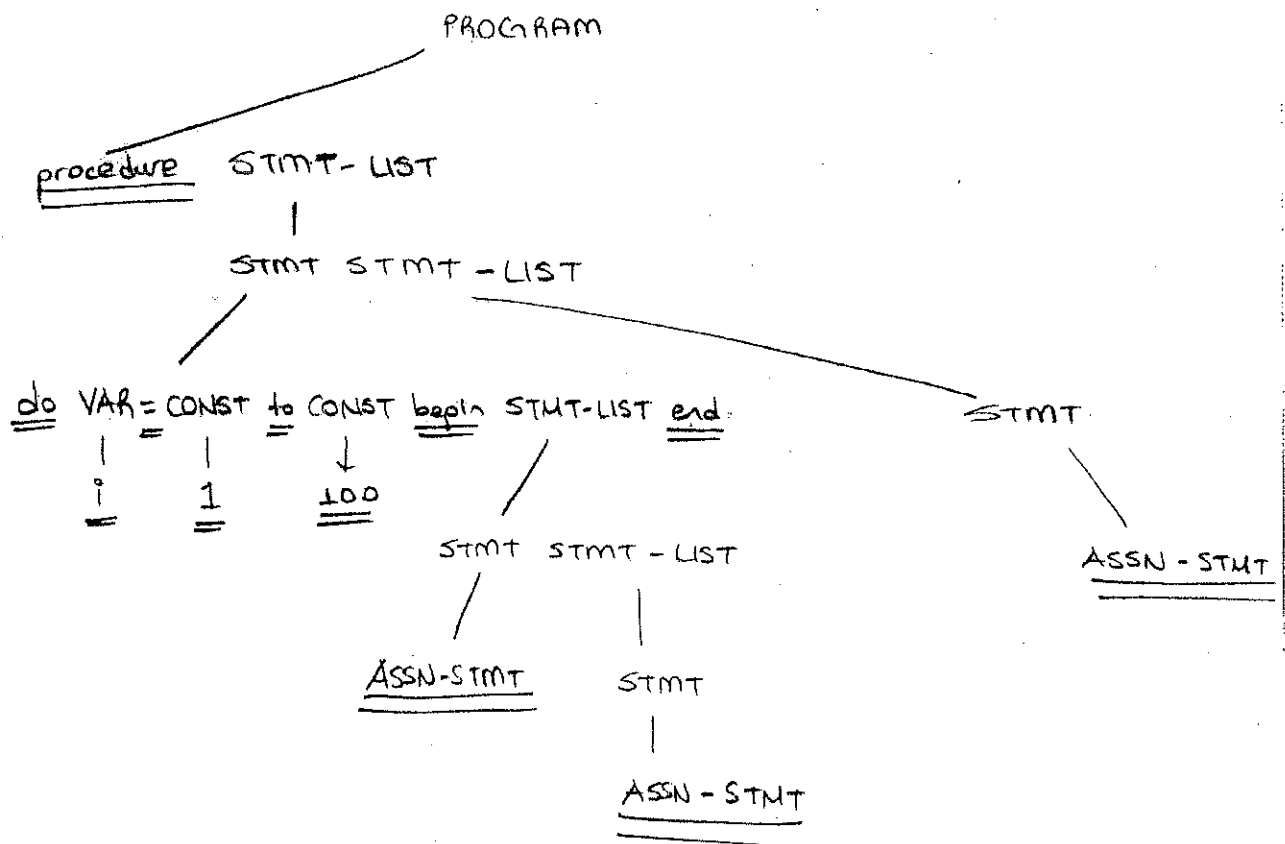 PROGRAM
procedure STMT-LIST
STMT STMT-LIST
do VAR = CONST to CONST begin STMT-LIST end STMT
i 1 100
STMT STMT-LIST ASSN-STMT
ASSN-STMT STMT
ASSN-STMT